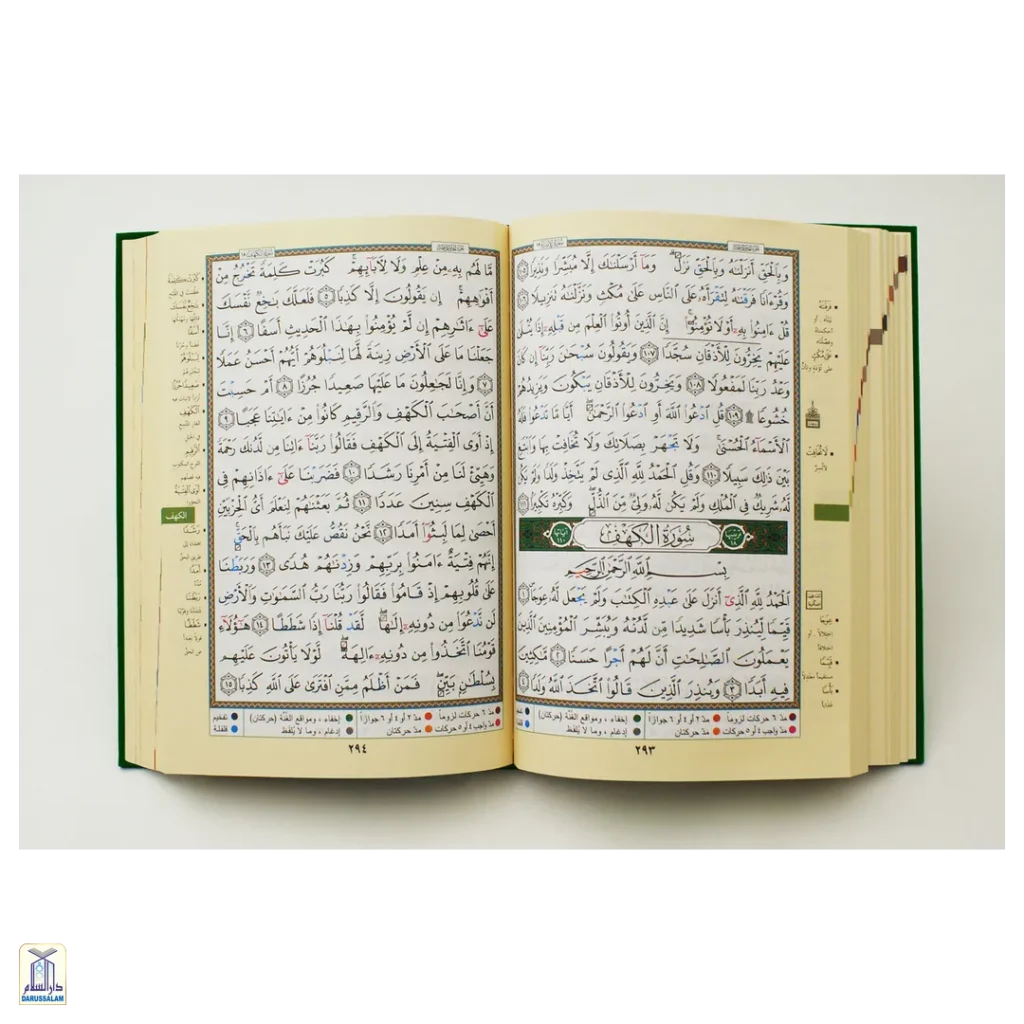 وَبِٱلْحَقِّ أَنزَلْنَٰهُ وَبِٱلْحَقِّ نَزَلَ ۗ وَمَآ أَرْسَلْنَٰكَ إِلَّا مُبَشِّرًا وَنَذِيرًا ١٠٥
وَقُرْءَانًا فَرَقْنَٰهُ لِتَقْرَأَهُۥ عَلَى ٱلنَّاسِ عَلَىٰ مُكْثٍ وَنَزَّلْنَٰهُ تَنزِيلًا ١٠٦
قُلْ ءَامِنُوا۟ بِهِۦٓ أَوْ لَا تُؤْمِنُوٓا۟ ۚ إِنَّ ٱلَّذِينَ أُوتُوا۟ ٱلْعِلْمَ مِن قَبْلِهِۦٓ إِذَا يُتْلَىٰ
عَلَيْهِمْ يَخِرُّونَ لِلْأَذْقَانِ سُجَّدًا ١٠٧ وَيَقُولُونَ سُبْحَٰنَ رَبِّنَآ إِن كَانَ
وَعْدُ رَبِّنَا لَمَفْعُولًا ١٠٨ وَيَخِرُّونَ لِلْأَذْقَانِ يَبْكُونَ وَيَزِيدُهُمْ
خُشُوعًا ۩ ١٠٩ قُلِ ٱدْعُوا۟ ٱللَّهَ أَوِ ٱدْعُوا۟ ٱلرَّحْمَٰنَ ۖ أَيًّا مَّا تَدْعُوا۟ فَلَهُ
ٱلْأَسْمَآءُ ٱلْحُسْنَىٰ ۚ وَلَا تَجْهَرْ بِصَلَاتِكَ وَلَا تُخَافِتْ بِهَا وَٱبْتَغِ
بَيْنَ ذَٰلِكَ سَبِيلًا ١١٠ وَقُلِ ٱلْحَمْدُ لِلَّهِ ٱلَّذِى لَمْ يَتَّخِذْ وَلَدًا وَلَمْ يَكُن
لَّهُۥ شَرِيكٌ فِى ٱلْمُلْكِ وَلَمْ يَكُن لَّهُۥ وَلِىٌّ مِّنَ ٱلذُّلِّ ۖ وَكَبِّرْهُ تَكْبِيرًۢا ١١١
سُورَةُ ٱلْكَهْفِ
بِسْمِ ٱللَّهِ ٱلرَّحْمَٰنِ ٱلرَّحِيمِ
ٱلْحَمْدُ لِلَّهِ ٱلَّذِىٓ أَنزَلَ عَلَىٰ عَبْدِهِ ٱلْكِتَٰبَ وَلَمْ يَجْعَل لَّهُۥ عِوَجَا ۜ ١
قَيِّمًا لِّيُنذِرَ بَأْسًا شَدِيدًا مِّن لَّدُنْهُ وَيُبَشِّرَ ٱلْمُؤْمِنِينَ ٱلَّذِينَ
يَعْمَلُونَ ٱلصَّٰلِحَٰتِ أَنَّ لَهُمْ أَجْرًا حَسَنًا ٢ مَّٰكِثِينَ
فِيهِ أَبَدًا ٣ وَيُنذِرَ ٱلَّذِينَ قَالُوا۟ ٱتَّخَذَ ٱللَّهُ وَلَدًا ٤
مدّ ٦ حركات لزوماً مدّ ٢ أو ٤ أو ٦ جوازاً إخفاء ، ومواقع الغُنَّة (حركتان)
مدّ واجب ٤ أو ٥ حركات مدّ حركتان إدغام ، وما لا يُلفَظ
٢٩٣
مَّا لَهُم بِهِۦ مِنْ عِلْمٍ وَلَا لِـَٔابَآئِهِمْ ۚ كَبُرَتْ كَلِمَةً تَخْرُجُ مِنْ
أَفْوَٰهِهِمْ ۚ إِن يَقُولُونَ إِلَّا كَذِبًا ٥ فَلَعَلَّكَ بَٰخِعٌ نَّفْسَكَ
عَلَىٰٓ ءَاثَٰرِهِمْ إِن لَّمْ يُؤْمِنُوا۟ بِهَٰذَا ٱلْحَدِيثِ أَسَفًا ٦ إِنَّا
جَعَلْنَا مَا عَلَى ٱلْأَرْضِ زِينَةً لَّهَا لِنَبْلُوَهُمْ أَيُّهُمْ أَحْسَنُ عَمَلًا
٧ وَإِنَّا لَجَٰعِلُونَ مَا عَلَيْهَا صَعِيدًا جُرُزًا ٨ أَمْ حَسِبْتَ
أَنَّ أَصْحَٰبَ ٱلْكَهْفِ وَٱلرَّقِيمِ كَانُوا۟ مِنْ ءَايَٰتِنَا عَجَبًا ٩
إِذْ أَوَى ٱلْفِتْيَةُ إِلَى ٱلْكَهْفِ فَقَالُوا۟ رَبَّنَآ ءَاتِنَا مِن لَّدُنكَ رَحْمَةً
وَهَيِّئْ لَنَا مِنْ أَمْرِنَا رَشَدًا ١٠ فَضَرَبْنَا عَلَىٰٓ ءَاذَانِهِمْ فِى
ٱلْكَهْفِ سِنِينَ عَدَدًا ١١ ثُمَّ بَعَثْنَٰهُمْ لِنَعْلَمَ أَىُّ ٱلْحِزْبَيْنِ
أَحْصَىٰ لِمَا لَبِثُوٓا۟ أَمَدًا ١٢ نَّحْنُ نَقُصُّ عَلَيْكَ نَبَأَهُم بِٱلْحَقِّ ۚ
إِنَّهُمْ فِتْيَةٌ ءَامَنُوا۟ بِرَبِّهِمْ وَزِدْنَٰهُمْ هُدًى ١٣ وَرَبَطْنَا
عَلَىٰ قُلُوبِهِمْ إِذْ قَامُوا۟ فَقَالُوا۟ رَبُّنَا رَبُّ ٱلسَّمَٰوَٰتِ وَٱلْأَرْضِ
لَن نَّدْعُوَا۟ مِن دُونِهِۦٓ إِلَٰهًا ۖ لَّقَدْ قُلْنَآ إِذًا شَطَطًا ١٤ هَٰٓؤُلَآءِ
قَوْمُنَا ٱتَّخَذُوا۟ مِن دُونِهِۦٓ ءَالِهَةً ۖ لَّوْلَا يَأْتُونَ عَلَيْهِم
بِسُلْطَٰنٍۭ بَيِّنٍ ۖ فَمَنْ أَظْلَمُ مِمَّنِ ٱفْتَرَىٰ عَلَى ٱللَّهِ كَذِبًا ١٥
الكهف
مدّ ٦ حركات لزوماً مدّ ٢ أو ٤ أو ٦ جوازاً إخفاء ، ومواقع الغُنَّة (حركتان) تفخيم
مدّ واجب ٤ أو ٥ حركات مدّ حركتان إدغام ، وما لا يُلفَظ قلقلة
٢٩٤
دار السلام
DARUSSALAM